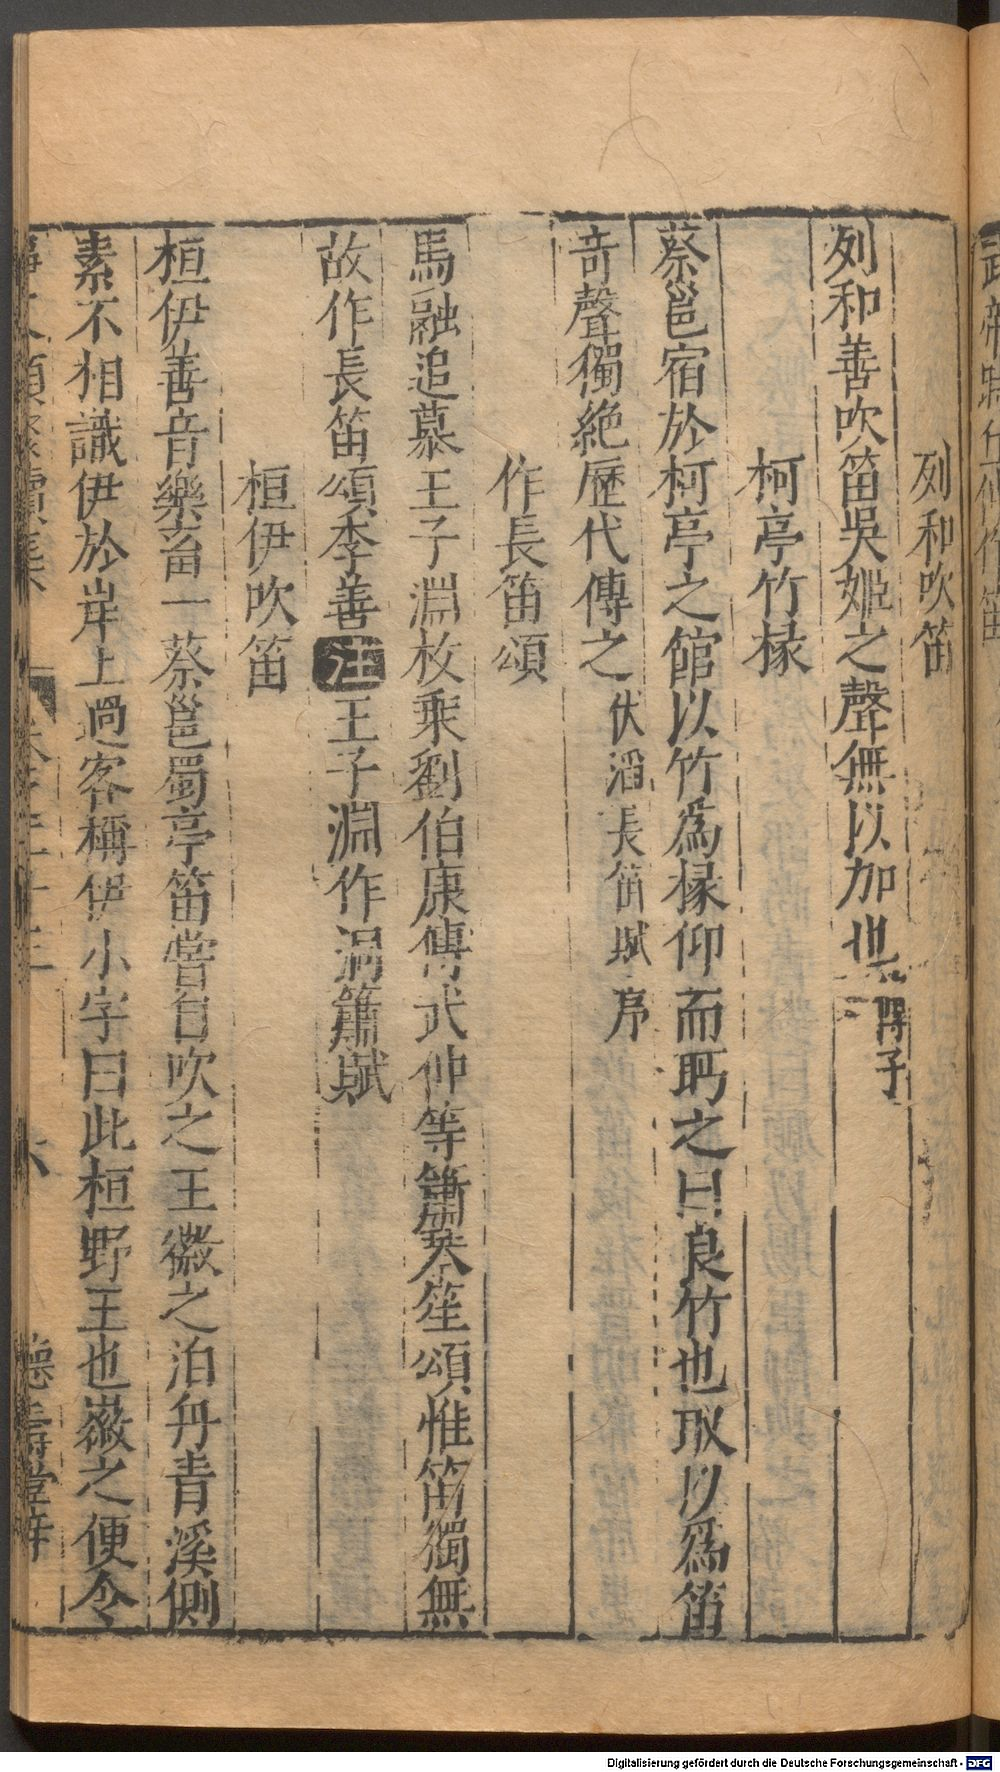 列和吹笛
列和善吹笛吳姬之聲無以加也 子
柯亭竹椽
蔡邕宿於柯亭之館以竹爲椽仰而眄之曰良竹也取以爲笛
奇聲獨絶歷代傳之 伏滔長笛賦序
作長笛頌
馬融追慕王子淵枚乘劉伯康傅武仲等簫琴笙頌惟笛獨無
故作長笛頌李善注王子淵作洞簫賦
桓伊吹笛
桓伊善音樂畜一蔡邕蜀亭笛嘗自吹之王徽之泊舟青溪側
素不相識伊於岸上過客稱伊小字曰此桓野王也徽之便令
德壽堂梓
Digitalisierung gefördert durch die Deutsche Forschungsgemeinschaft - DFG